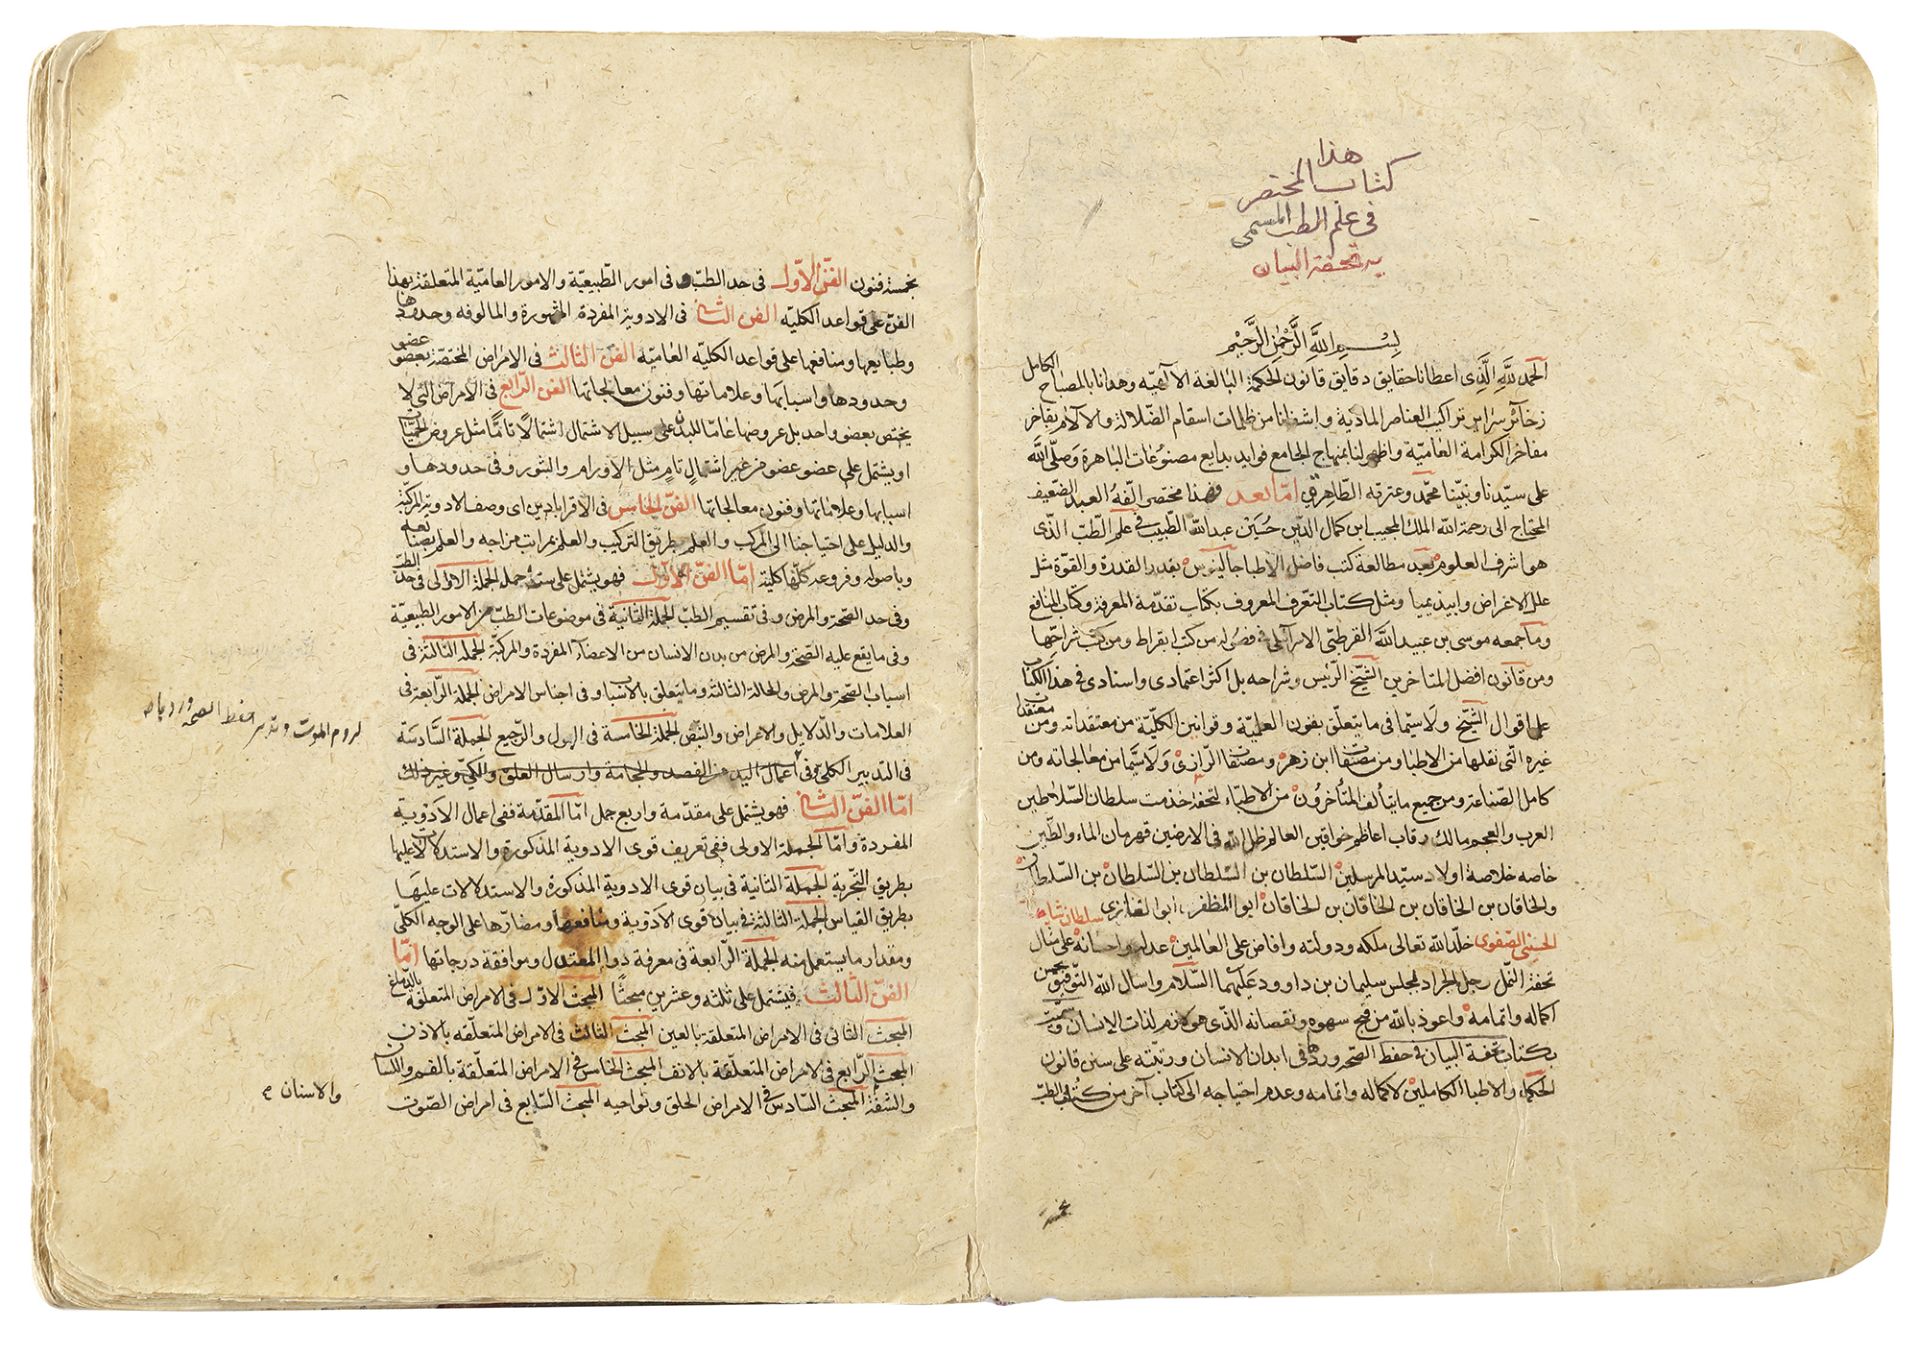 هذا
كتاب المختصر
فى علم الطب المسمى
بتحفة البيان
بسم الله الرحمن الرحيم
الحمد لله الذى اعطانا حقايق دقايق قانون الحكمة البالغة الآلهيه وهدانا بالمصباح الكامل
زخائر سراير تراكيب العناصر المادية واشفانا من ظلمات اسقام الضلالة والآلام بفاخر
مفاخر الكرامة العامية واظهر لنا بمنهاج الجامع فوايد بدايع مصنوعات الباهرة وصلى الله
على سيدنا ونبينا محمد وعترته الطاهرين اما بعد فهذا مختصر الفه العبد الضعيف
المحتاج الى رحمة الله الملك المجيب ابن كمال الدين حسين عبد الله الطبيب فى علم الطب الذى
هو اشرف العلوم بعد مطالعة كتب فاضل الاطبا جالينوس بقدر القدرة والقوة مثل
علل الاعراض وابيذيميا ومثل كتاب التعرف المعروف بكتاب تقدمة المعرفة وكتاب المنافع
وما جمعه موسى بن عبيد الله القرطبى الاسرآئلى فى فصوله من كتب ابقراط ومن كتب شراحها
ومن قانون افضل المتاخرين الشيخ الرئيس وشراحه بل اكثر اعتمادى واسنادى فى هذا الكتاب
على اقوال الشيخ ولا سيما فى ما يتعلق بفنون العلمية وقوانين الكلية من معتقداته ومن معتقدات
غيره التى نقلها من الاطبا ومن مصنفات ابن زهر ومصنفات الرازى ولا سيما من معالجاته ومن
كامل الصناعة ومن جميع ما يتألف المتأخرون من الاطباء لتحفة خدمت سلطان السلاطين
العرب والعجم مالك رقاب اعاظم خواقين العالم ظل الله فى الارضين قهرمان الماء والطين
خاصه خلاصة اولاد سيد المرسلين السلطان بن السلطان بن السلطان بن السلطان
والخاقان بن الخاقان بن الخاقان بن الخاقان ابو المظفر ابو الغازى سلطان شاه
الحسينى الصفوى خلد الله تعالى ملكه ودولته وافاض على العالمين عدله واحسانه على مثال
تحفة النمل رجل الجراد لمجلس سليمان بن داوود عليهما السلام واسال الله التوفيق بحسن
اكماله واتمامه واعوذ بالله من قبح سهوه ونقصانه الذى هو لازم لذات الانسان وسميته
بكتاب تحفة البيان فى حفظ الصحة وردها فى ابدان الانسان ورتبته على سنن قانون
الحكماء والاطبا الكاملين لاكماله واتمامه وعدم احتياجه الى كتاب آخر من كتب فى الطب
بخمسة فنون الفن الاول فى حد الطب وفى امور الطبيعية والامور العامية المتعلقة بهذا
الفن على قواعد الكليه الفن الثانى فى الادوية المفردة المشهورة والمالوفه وحدودها
وطبايعها ومنافعها على قواعد الكليه العاميه الفن الثالث فى الامراض المختصة بعضو عضو
وحدودها واسبابها وعلاماتها وفنون معالجاتها الفن الرابع فى الامراض التى لا
يختص بعضو واحد بل عروضها عاما للبدن على سبيل الاشتمال اشتمالا تاما مثل عروض الحميات
او يشتمل على عضو عضو من غير اشتمال تام مثل الاورام والبثور وفى حدودها و
اسبابها وعلاماتها وفنون معالجاتها الفن الخامس فى الاقراباديين اى وصف الادوية المركبة
والدليل على احتياجنا الى المركب والعلم بطريق التركيب والعلم بمراتب مزاجه والعلم بصناعه
وباصوله وفروعه كلها كلية اما الفن الاول فهو يشتمل على ستة جمله الجملة الاولى فى حد الطب
وفى حد الصحة والمرض وفى تقسيم الطب الجملة الثانية فى موضوعات الطب من الامور الطبيعية
وفى ما يقع عليه الصحة والمرض من بدن الانسان من الاعضآء المفردة والمركبة الجملة الثالثة فى
اسباب الصحة والمرض والحالة الثالثة وما يتعلق بالاسباب وفى اجناس الامراض الجملة الرابعة فى
العلامات والدلايل والاعراض والنبض الجملة الخامسة فى البول والرجيع الجملة السادسة
لزوم الموت وتدبير حفظ الصحة ورد
فى التدبير الكلى وفى اعمال اليد من الفصد والحجامة وارسال العلق والكى وغير ذلك
اما الفن الثانى فهو يشتمل على مقدمة واربع جمل اما المقدمة ففى اعمال الادوية
المفردة واما الجملة الاولى ففى تعريف قوى الادوية المذكورة والاستدلالات عليها
بطريق التجربة الجملة الثانية فى بيان قوى الادوية المذكورة والاستدلالات عليها
بطريق القياس الجملة الثالثة فى بيان قوى الادوية ومنافعها ومضارها على الوجه الكلى
ومقدار ما يستعمل منه الجملة الرابعة فى معرفة دوا المعتدل وموافقة درجاتها اما
الفن الثالث فيشتمل على ثلثة وعشرين مبحثا المبحث الاول فى الامراض المتعلقة بالدماغ
المبحث الثانى فى الامراض المتعلقة بالعين المبحث الثالث فى الامراض المتعلقه بالاذن
المبحث الرابع فى الامراض المتعلقة بالانف المبحث الخامس فى الامراض المتعلقة بالفم واللسان
والاسنان
والشفة المبحث السادس فى الامراض الحلق ونواحيه المبحث السابع فى امراض الصوت